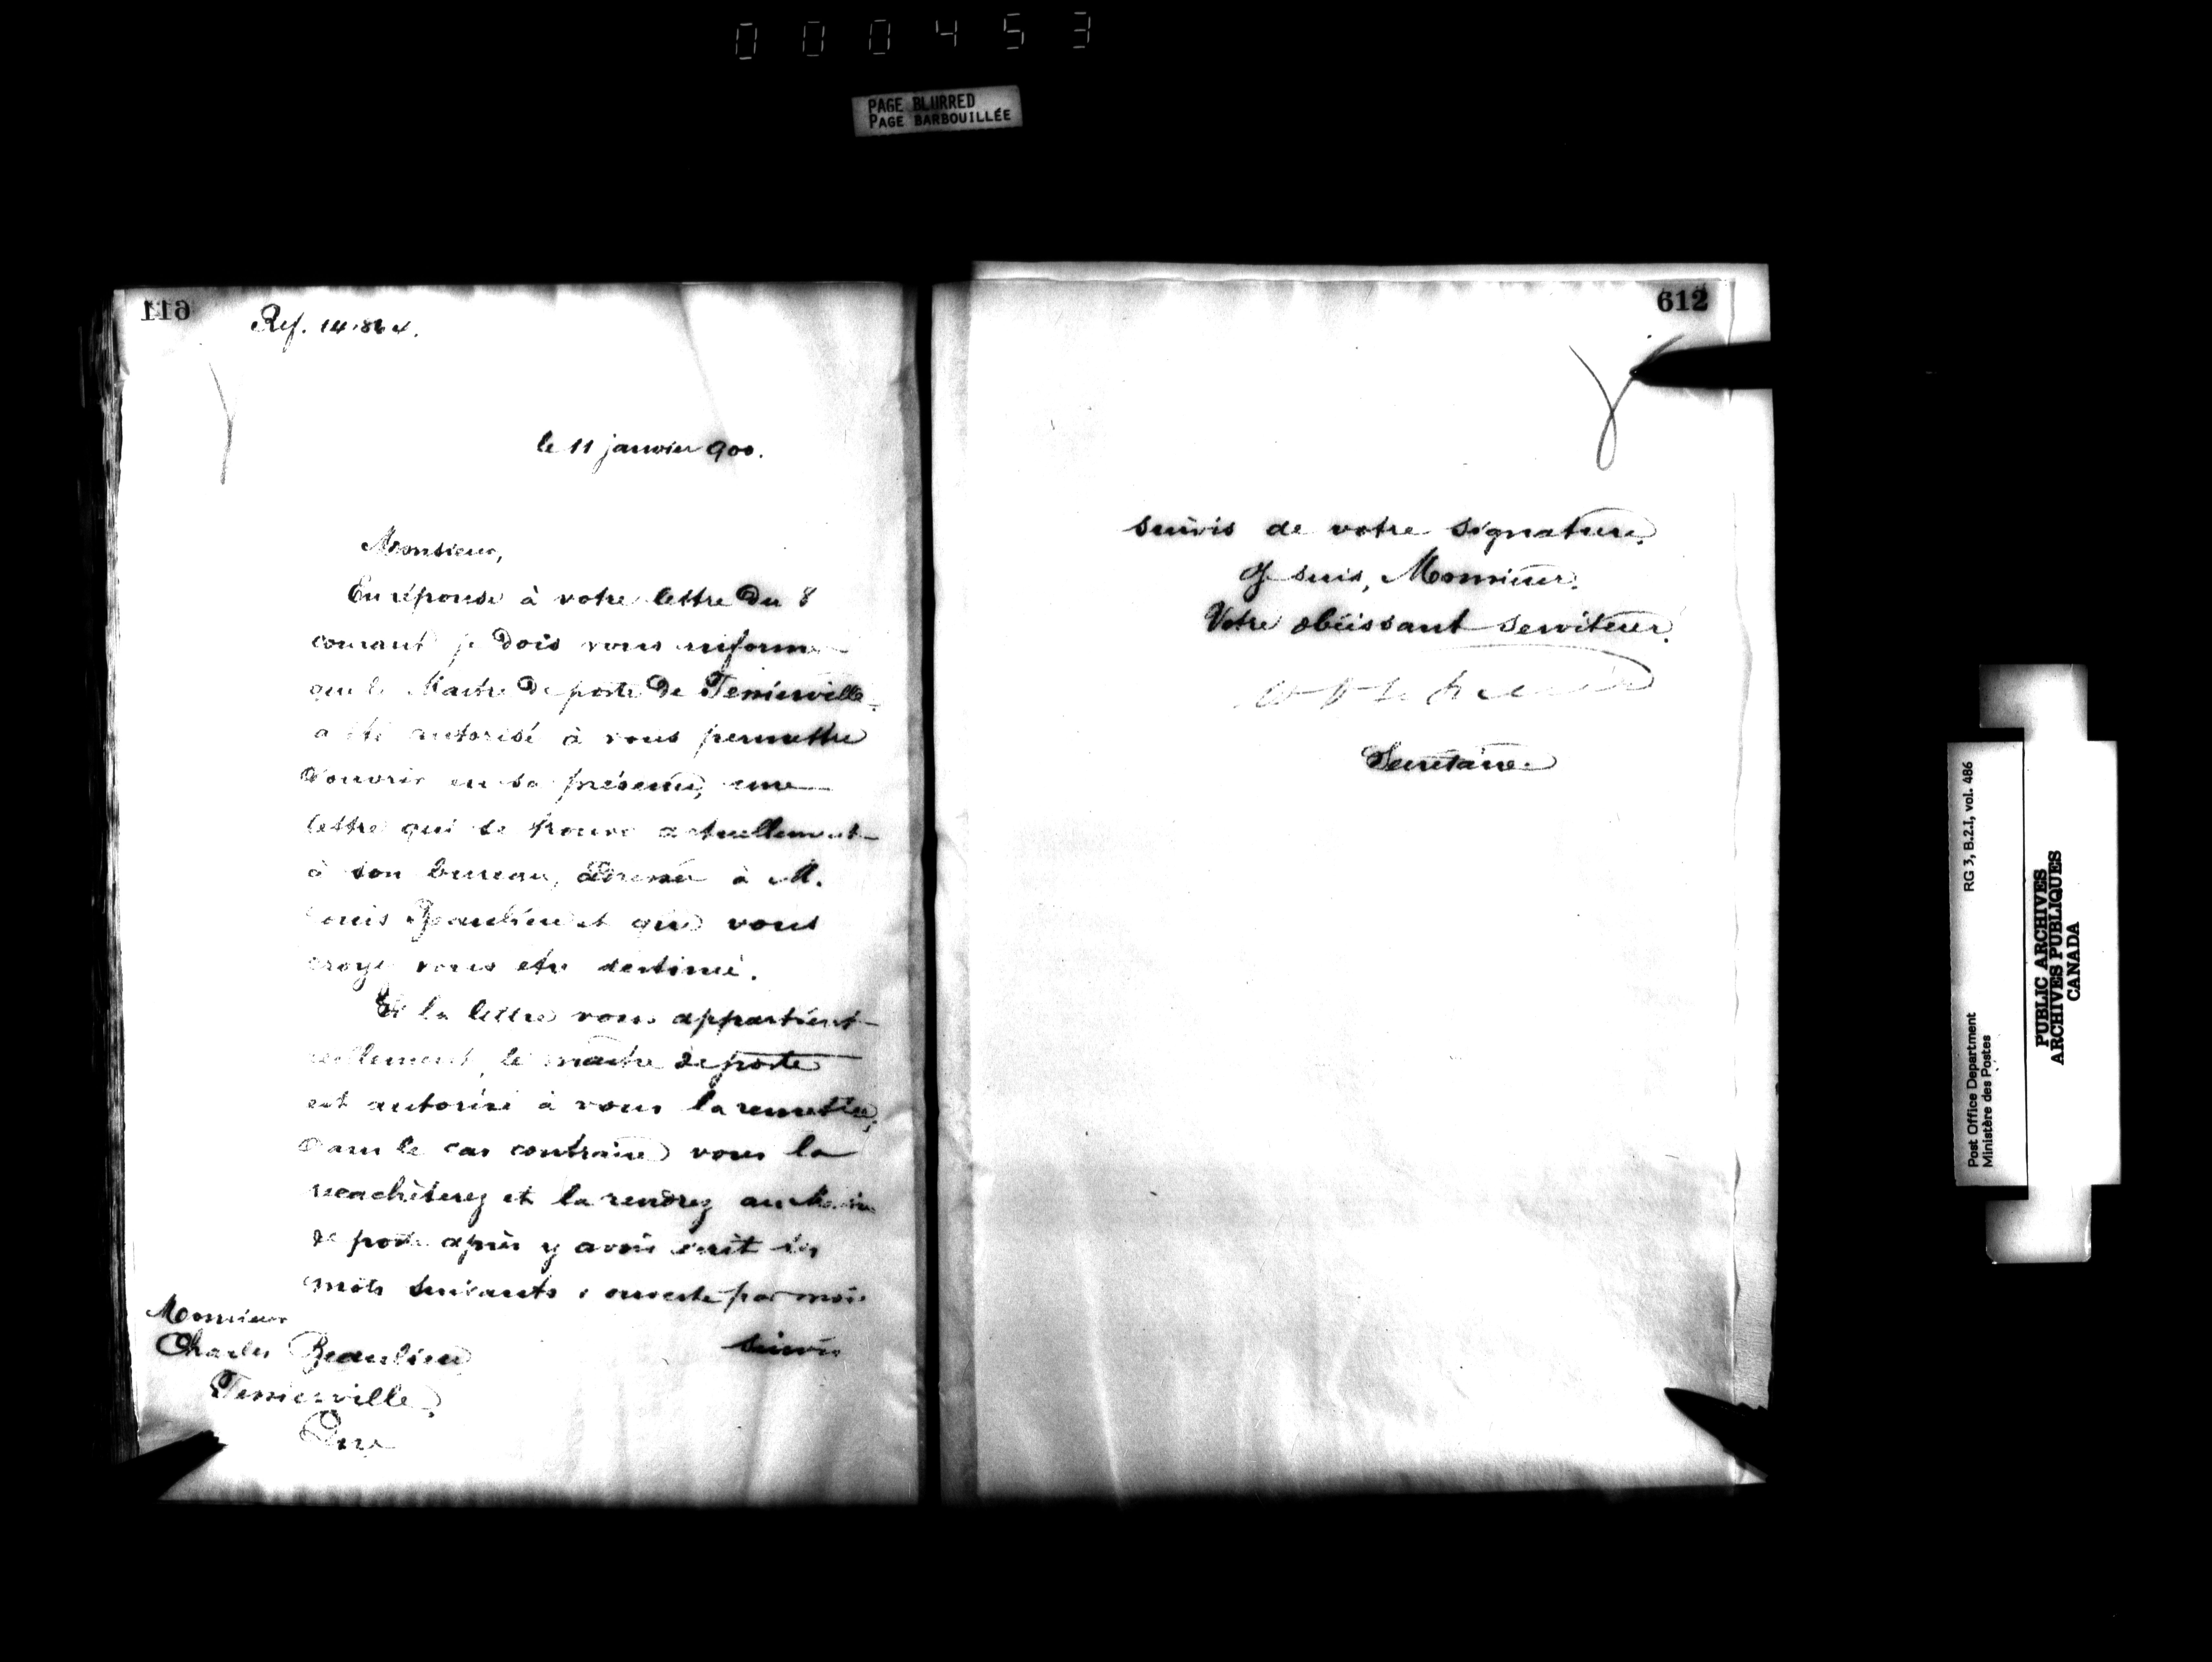 000453
PAGE BLURRED
PAGE BARBOUILLÉE
611
Ref. 14.864.
le 11 janvier 900.
Monsieur,
En réponse à votre lettre du 8
courant je dois vous informer
que le Maître de poste de
a été autorisé à vous permettre
d'ouvrir en sa présence, une
lettre qui se trouve actuellement
à son bureau, adressée à M.
Louis Beaulieu et que vous
croyez vous etre destinée.
Si la lettre vous appartient
réellement, le maître de poste
est autorisé à vous la remettre;
dans le cas contraire vous la
recachèterez et la rendrez au Maître
de poste après y avoir écrit les
mots suivants: ouverte par moi
suivis
Monsieur
Charles Beaulieu
Que
612
suivis de votre signature.
Je suis, Monsieur,
Votre obéissant serviteur.
Secretaire.
Post Office Department
Ministère des Postes
RG 3, B.2.I, vol. 486
PUBLIC ARCHIVES
ARCHIVES PUBLIQUES
CANADA